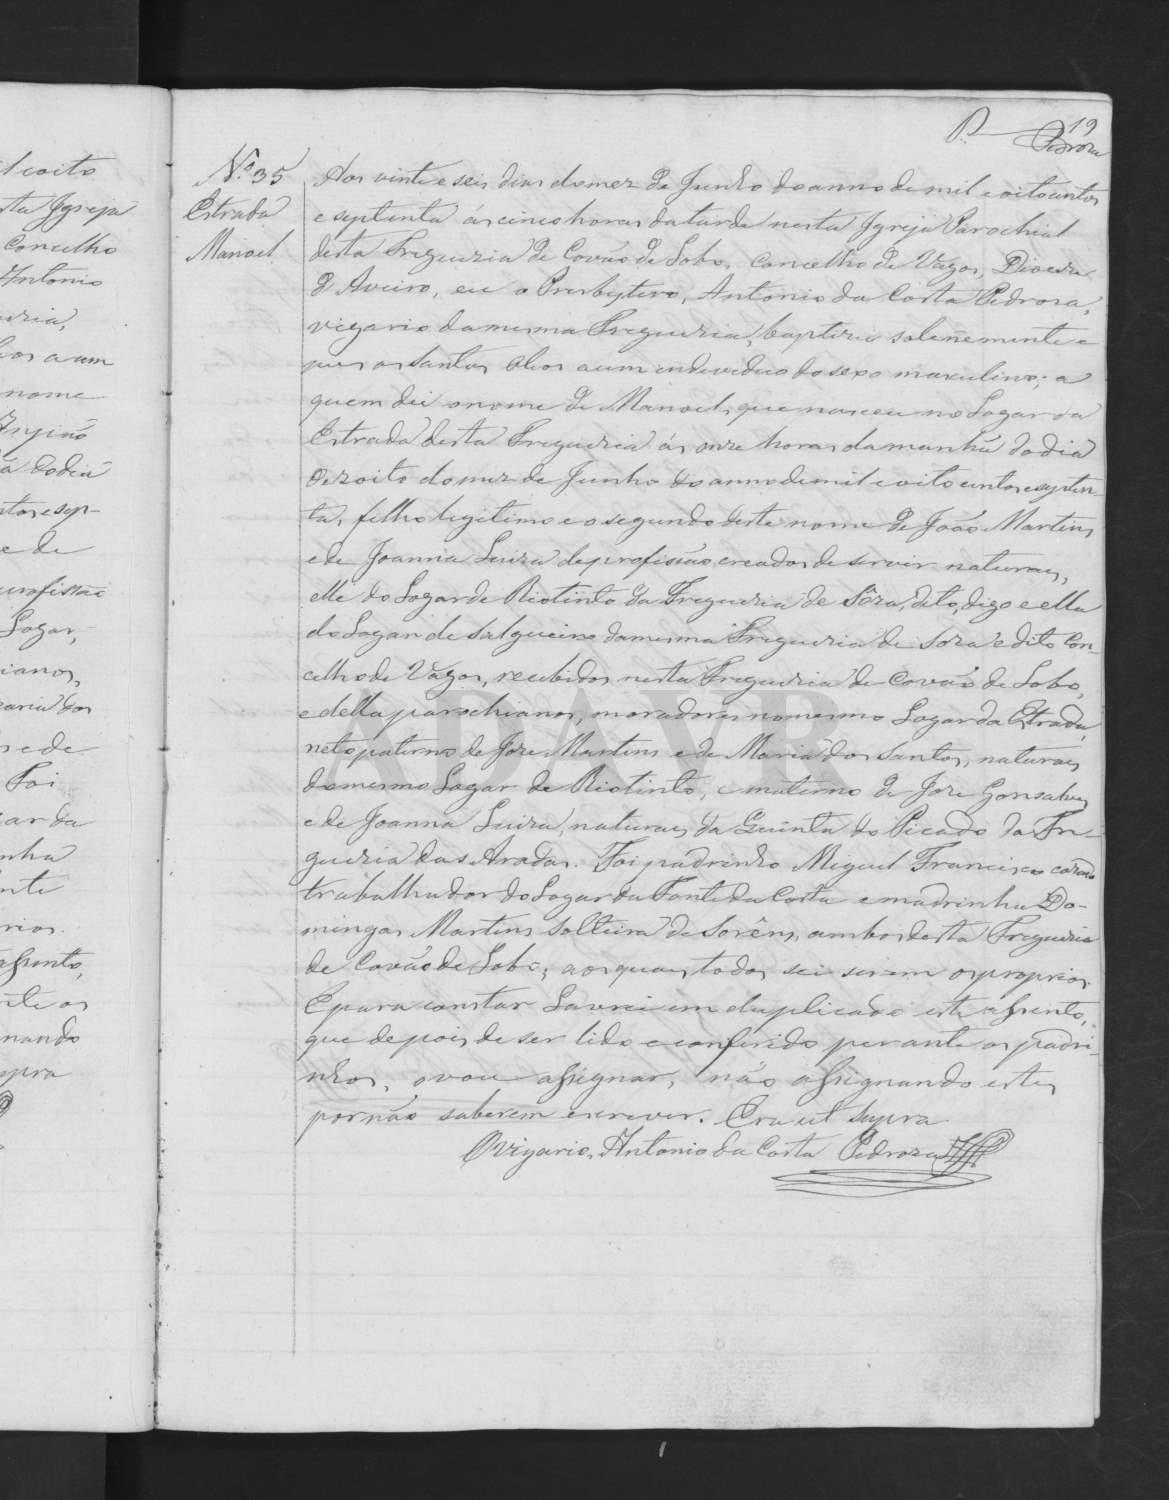 P. 19
Pedroza
l e oito
sta Igreja
Concelho
Antonio
leos a um
nome
a do dia
e de
profissão
Logar,
rianos,
Foi
gar da
nando
supra
N.º 35
Estrada
Manoel
Aos vinte e seis dias do mez de Junho do anno de mil e oitocentos
e septenta ás cinco horas da tarde nesta Igreja Parochial
desta Freguezia de Covão de Lobo, Concelho de Vagos, Diocese
d'Aveiro, eu o Presbytero, Antonio da Costa Pedroza,
vigario da mesma Freguezia, baptizei solennemente e
puz os Santos Oleos a um individuo do sexo masculino; a
quem dei o nome de Manoel, que nasceu no Logar da
Estrada desta Freguezia ás onze horas da manhã do dia
dezoito do mez de Junho do anno de mil e oito centos e septen-
ta, filho legitimo e o segundo deste nome de João Martins
e de Joanna Luiza de profissão creados de servir naturaes,
elle do Logar de Riotinto da Freguezia de Sôza, dito, digo e ella
do Logar de Salgueiro da mesma Freguezia de Soza e dito Con-
celho de Vagos, recebidos nesta Freguezia de Covão de Lobo,
e della parochianos, moradores no mesmo Logar da Estrada,
neto paterno de Joze Martins e de Maria dos Santos, naturaes
do mesmo Logar de Riotinto, e materno de Joze Gonsalves
e de Joanna Luiza, naturaes da Quinta do Picado da Fre-
guezia das Aradas. Foi padrinho Miguel Francisco cazado
trabalhador do Logar da Fonte da Costa e madrinha Do-
mingas Martins solteira de Sorêns, ambos desta Freguezia
de Covão de Lobo; aos quaes todos sei serem os proprios.
E para constar Lavrei em duplicado este assento,
que depois de ser lido e conferido perante os padri-
nhos, o vou assignar, não assignando estes
por não saberem escrever. Era ut supra
O vigario, Antonio da Costa Pedroza
ADAVR